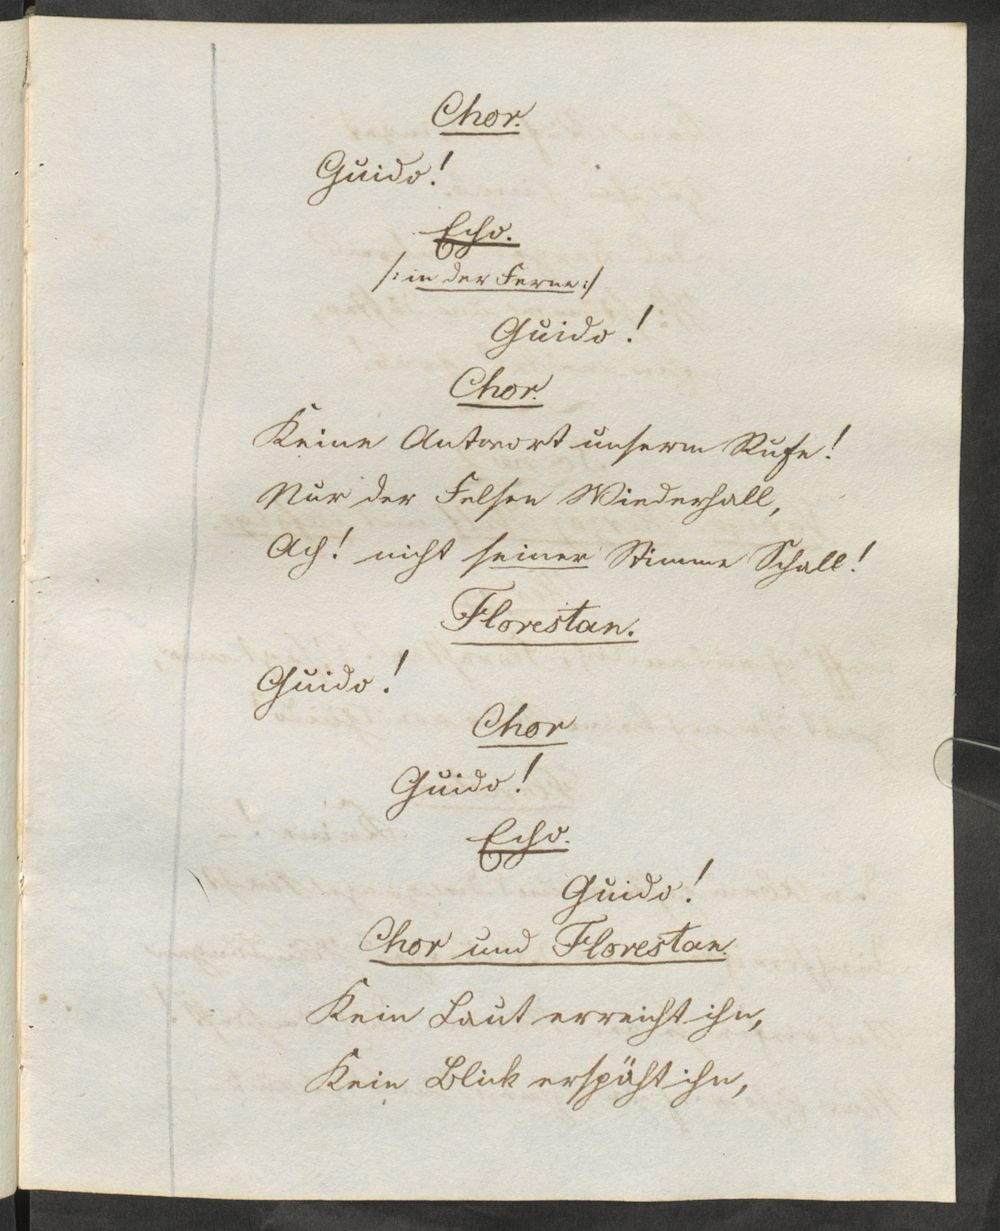 Chor.
Guido!
Echo.
/: in der Ferne :/
Guido!
Chor.
Keine Antwort unserm Rufe!
Nur der Felsen Wiederhall,
Ach! nicht seiner Stimme Schall!
Florestan.
Guido!
Chor
Guido!
Echo.
Guido!
Chor und Florestan.
Kein Laut erreicht ihn,
Kein Blick erspäht ihn,